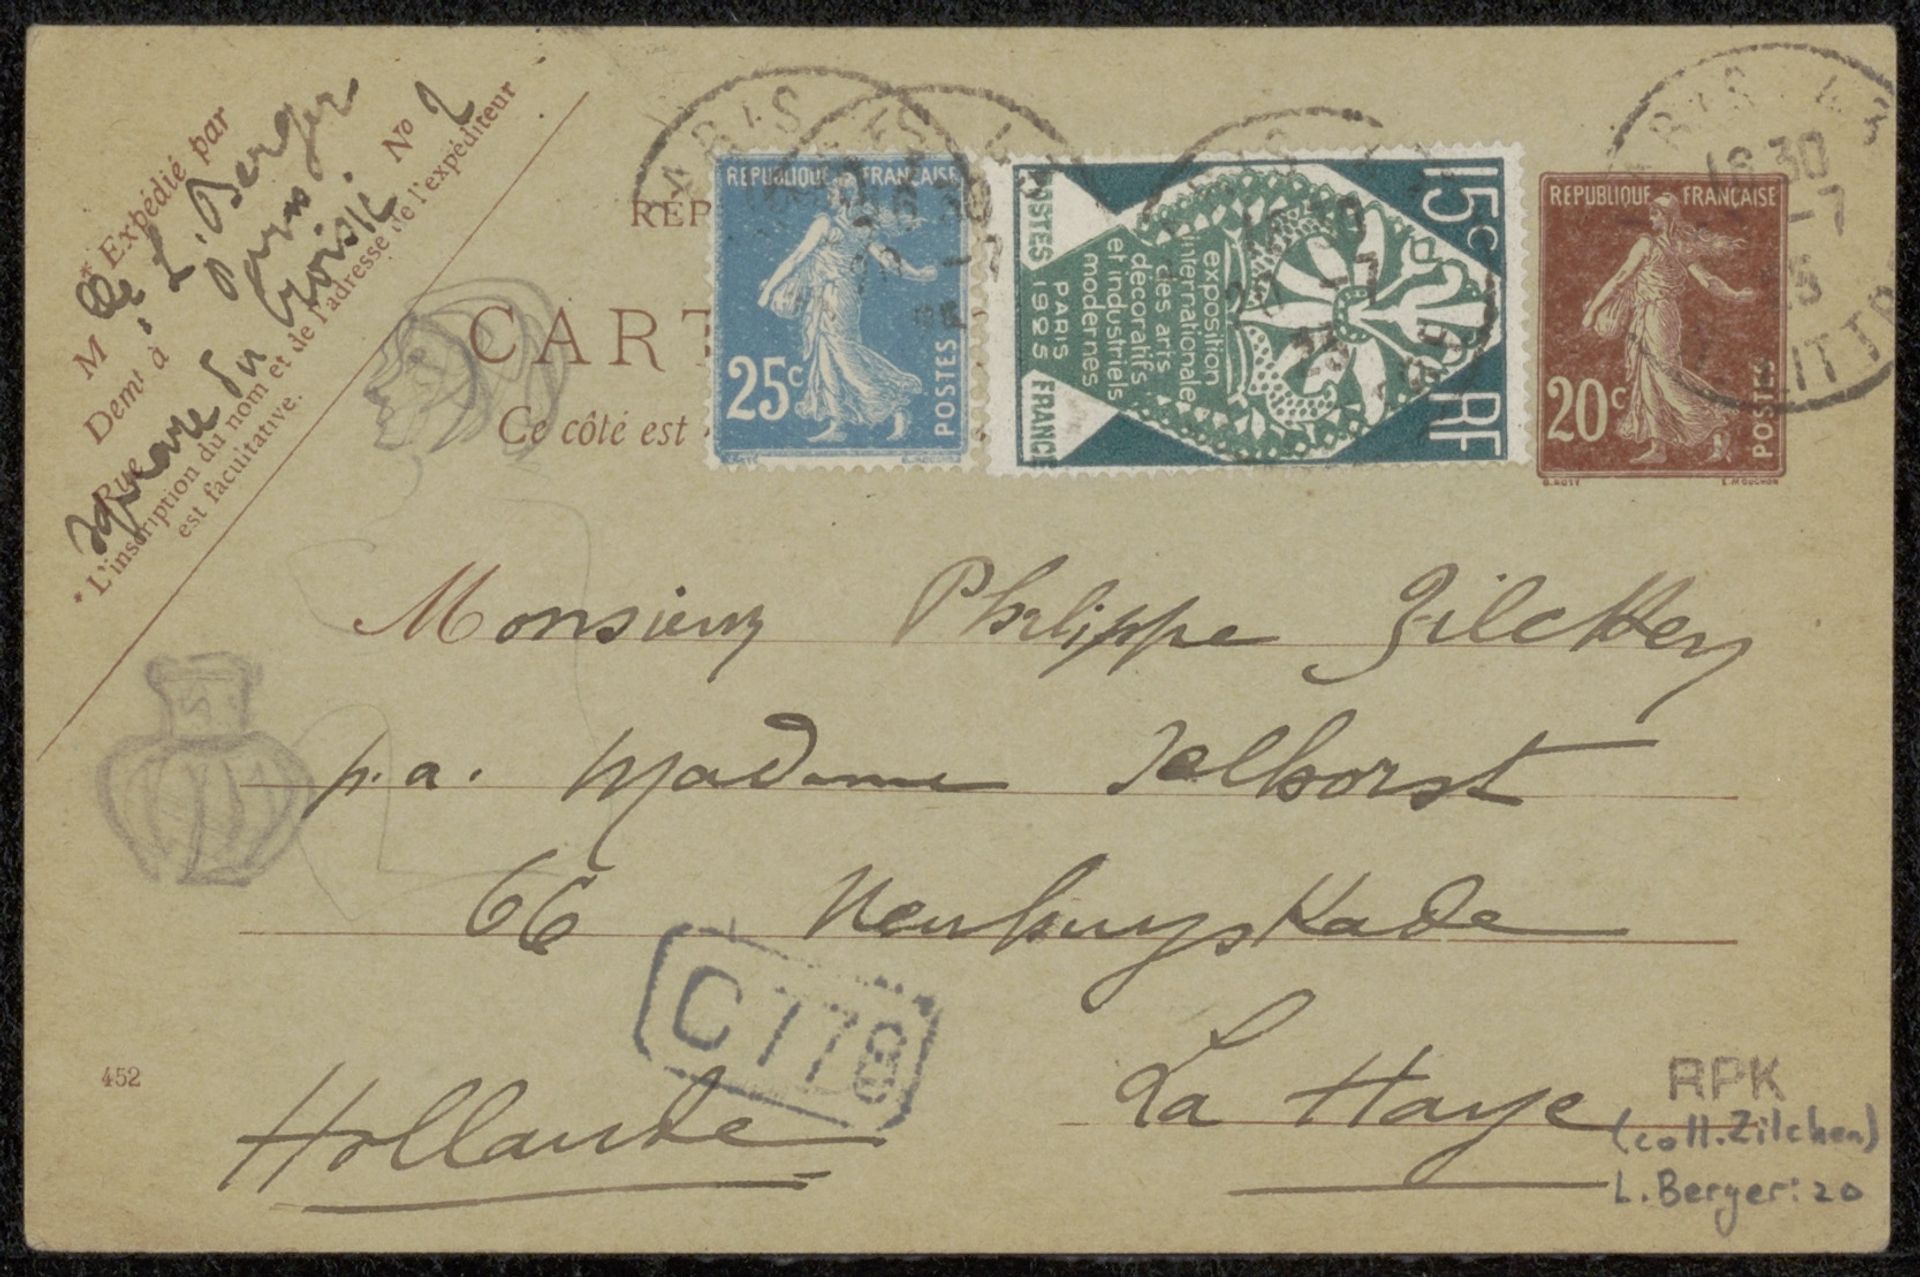 * Expédié par
Mlle L. Berger
Demt à Paris
Rue square du Croisic No 2
* L'inscription du nom et de l'adresse de l'expéditeur
est facultative.
RÉP
CART
Ce côté est
RÉPUBLIQUE FRANÇAISE
25c
POSTES
POSTES FRANCE
15c
RF
exposition
internationale
des arts
décoratifs
et industriels
modernes
PARIS
1925
RÉPUBLIQUE FRANÇAISE
20c
POSTES
O. ROTY E. MOUCHON
PARIS
16 30
-7
25
LITTRÉ
Monsieur Philippe Zilcken
p.a. Madame Delhorst
66 Neuhuyskade
La Haye
Hollande
C 178
452
RPK
(coll. Zilcken)
L. Berger: 20